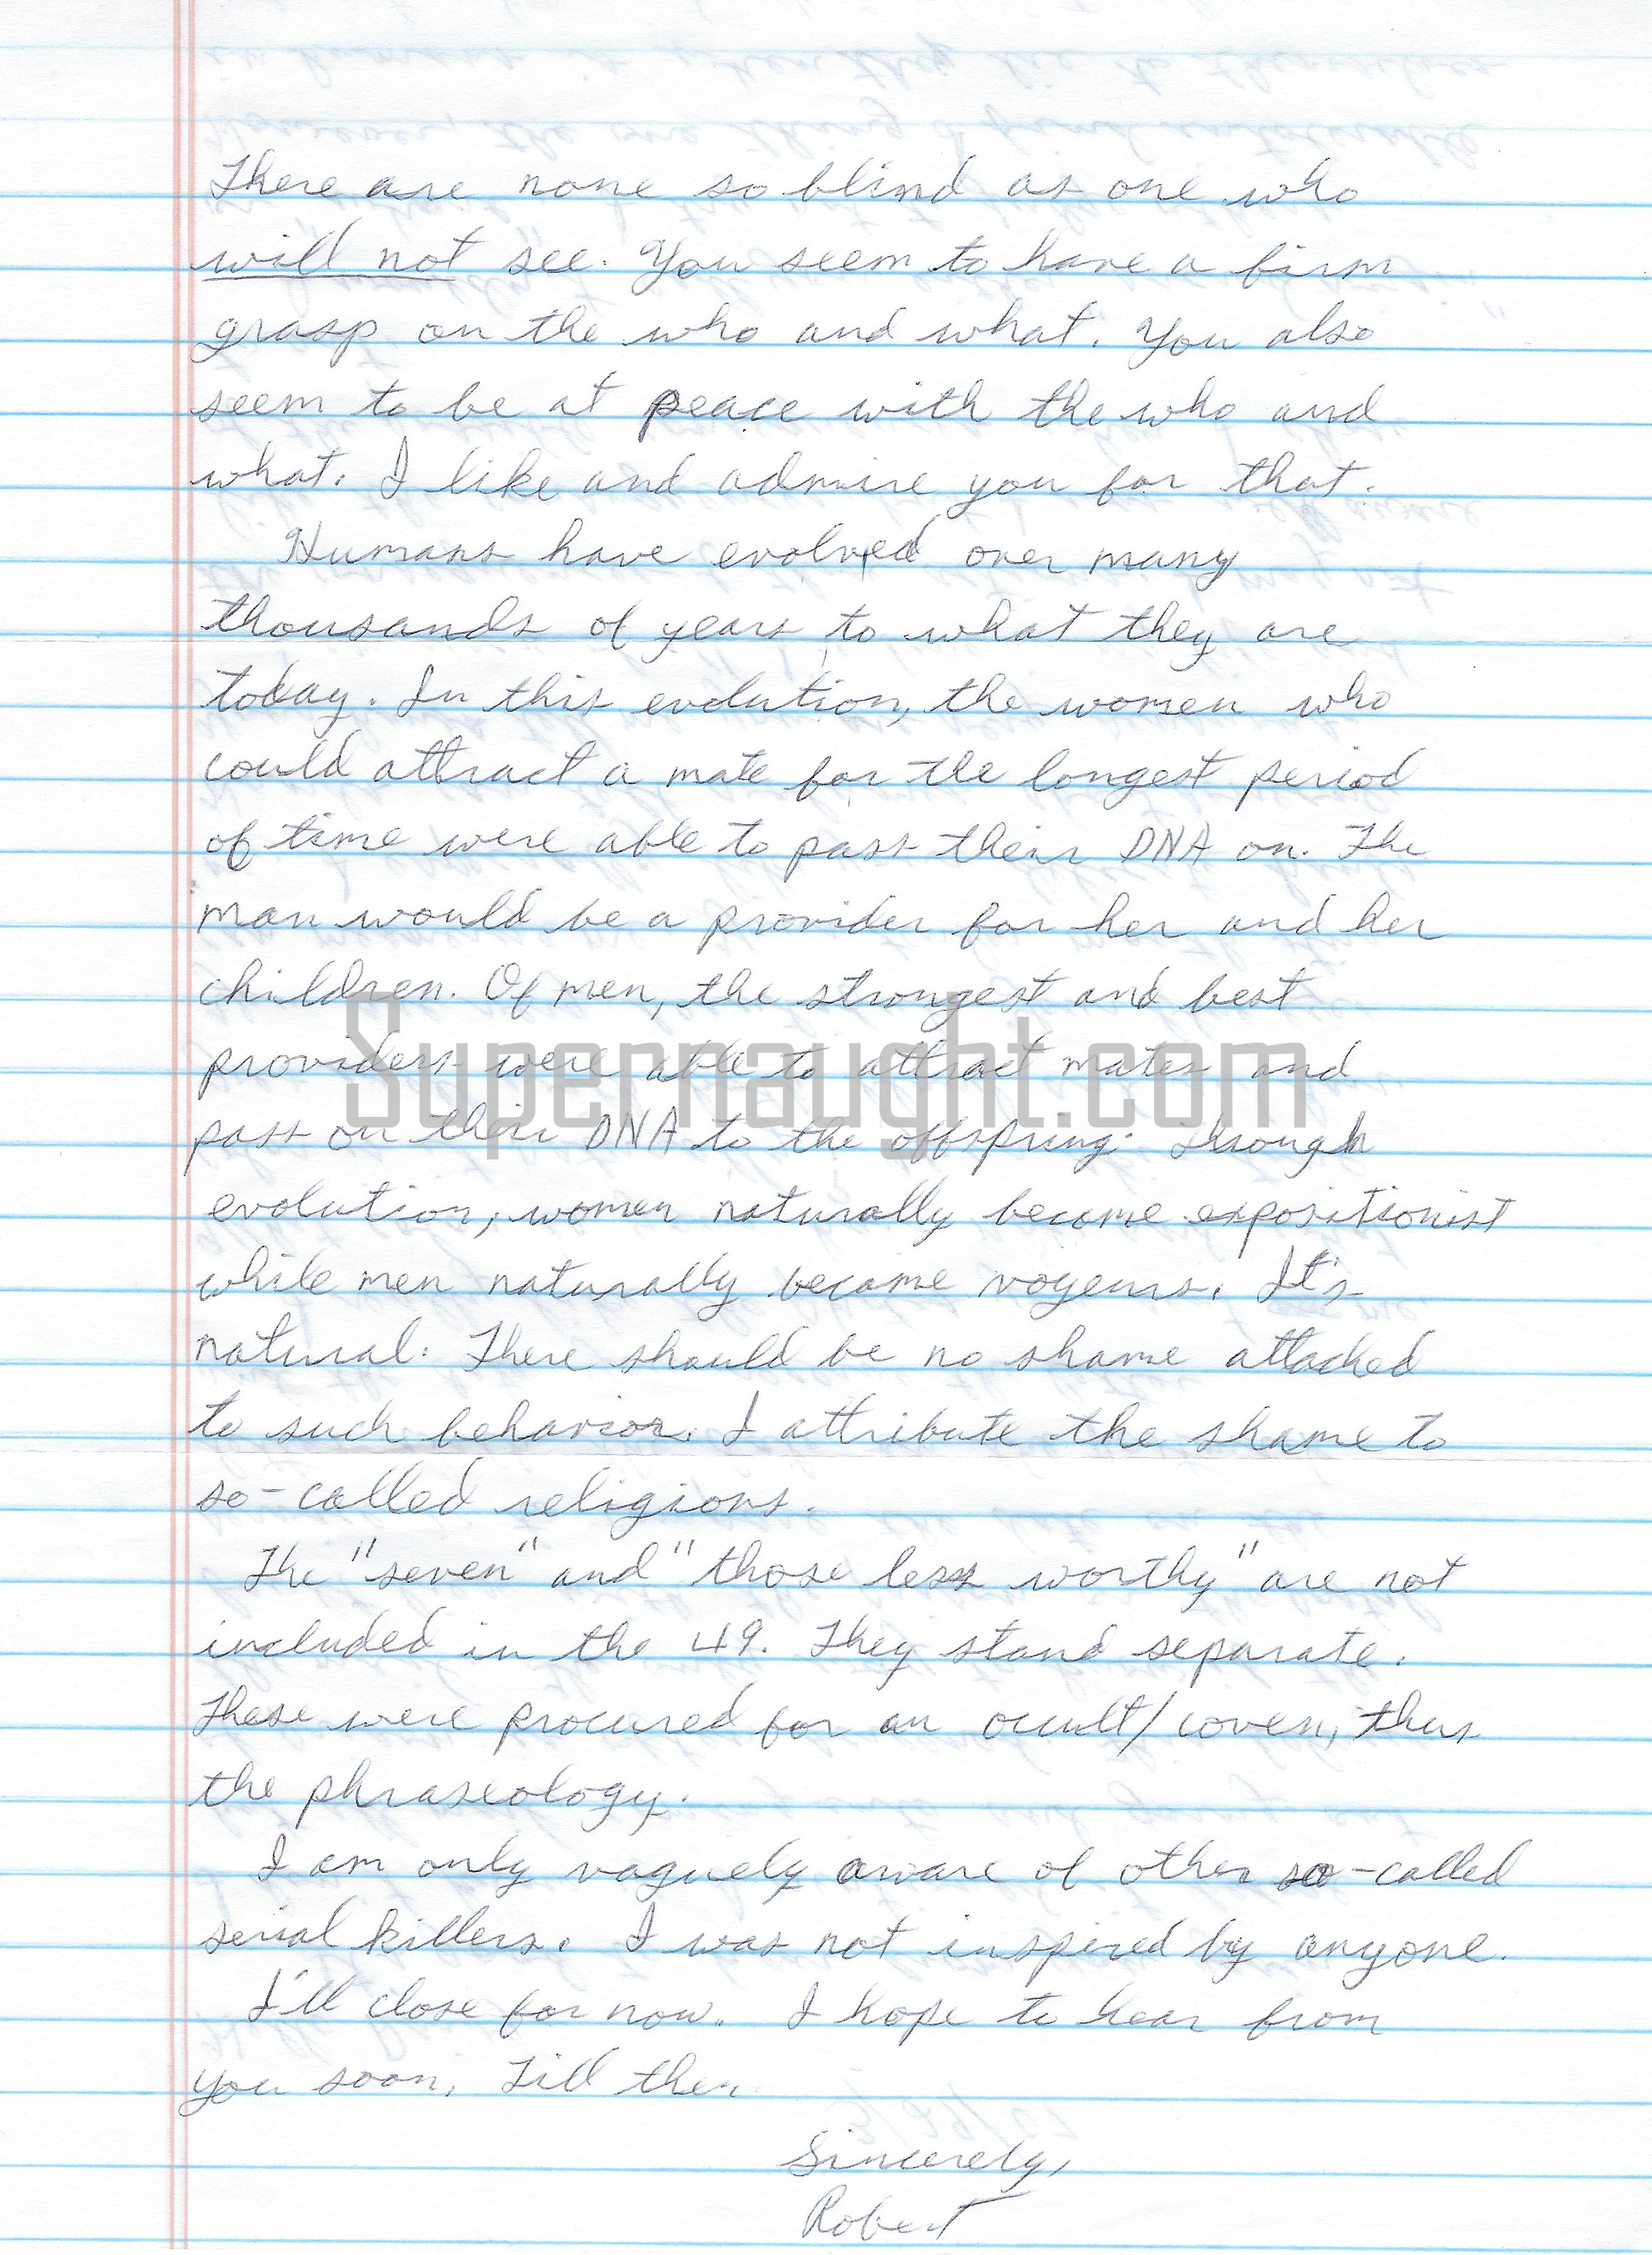 There are none so blind as one who
will not see. You seem to have a firm
grasp on the who and what. You also
seem to be at peace with the who and
what. I like and admire you for that.
Humans have evolved over many
thousands of years to what they are
today. In this evolution, the women who
could attract a mate for the longest period
of time were able to pass their DNA on. The
man would be a provider for her and her
children. Of men, the strongest and best
providers were able to attract mates and
Supernaught.com
pass on their DNA to the offspring. Through
evolution, women naturally become expositionist
while men naturally become voyeurs. It's
natural. There should be no shame attached
to such behavior. I attribute the shame to
so-called religions.
The "seven" and "those less worthy" are not
included in the 49. They stand separate.
These were procured for an occult/coven, thus
the phraseology.
I am only vaguely aware of other so-called
serial killers. I was not inspired by anyone.
I'll close for now. I hope to hear from
you soon. Till then.
Sincerely,
Robert